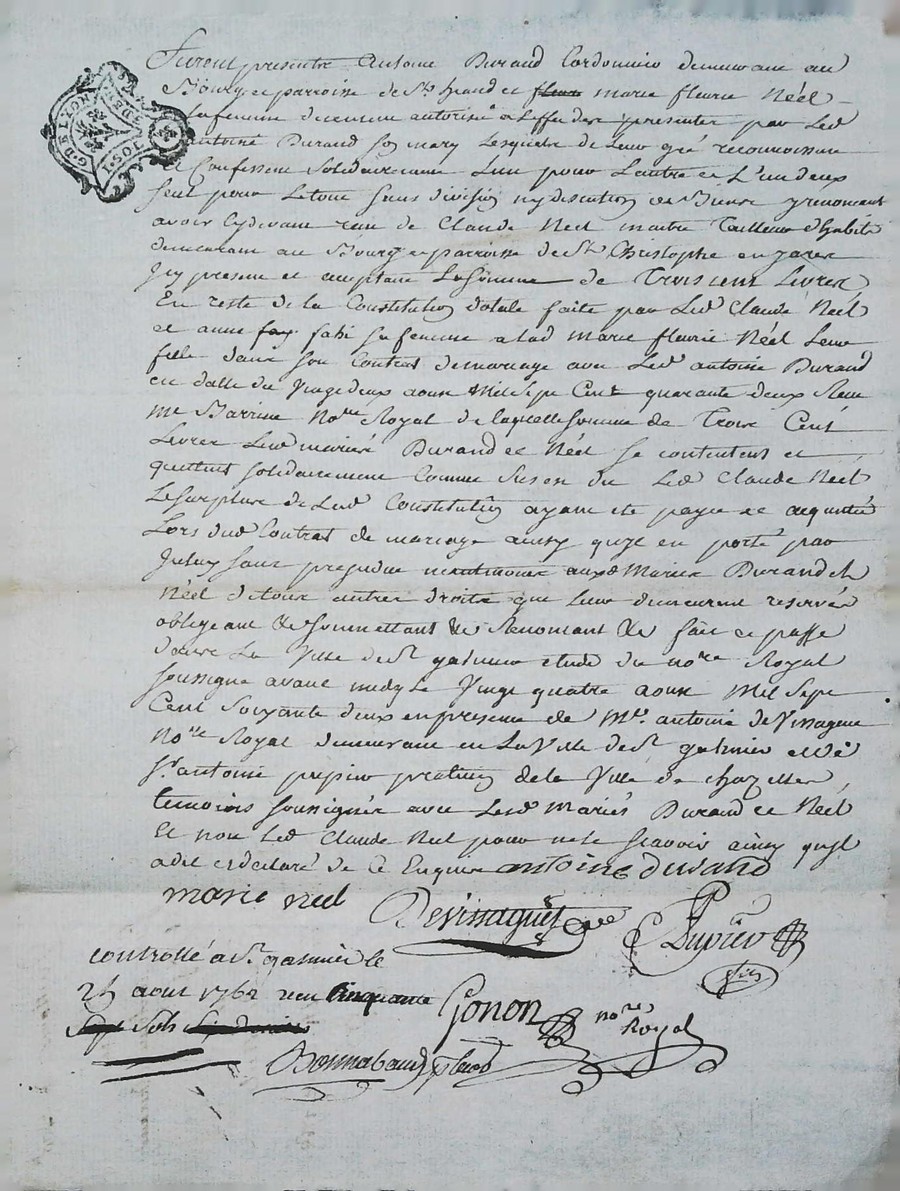 G. DE LYON
1. SOL
Furent presents Antoine Durand Cordonnier demeurant au
Bourg et parroisse de St heand et marie fleurie Néél
sa femme de autorisée a Leffet des presentes par Led
antoine Durand son mary Lesquels de Leur gré reconnoissent
et Confessent solidairement L'un pour Lautre et L'un deux
seul pour Letout sans division ny discution de Biens y renoncant
avoir cydevant reçu de Claude Néél maitre Tailleur d'habits
demeurant au Bourg et parroisse de St Christophe en jarez
Icy present et acceptant La somme de Trois cent Livres
En reste de la Constitution dotale faite par Led Claude Néél
et anne fahi sa femme a lad marie fleurie Néél Leur
fille dans son Contrat demariage avec Led antoine Durand
en datte du Vingt deux aoust Mil sept Cent quarante deux Reçu
Me No.re Royal de laquelle somme de Trois Cent
Livres Led mariés Durand et Néél se contentent et
quittent solidairement Comme dud Led Claude Néél
Lesurplus de Lad Constitution ayant eté payé et acquitté
Lors dud Contrat de mariage ainsy quil en porté par
Iceluy sans prejudice neantmoins auxd Mariés Durand et
Néél de tous autres droits que Leur demeurent reservés
obligeant &c soumettant &c Renoncant &c fait et passé
La Ville de St galmier etude du no.re Royal
soussigné avant midy Le Vingt quatre aoust Mil sept
Cent soixante deux en presence de Me. antoine deVinaguet
No.re Royal demeurant en La Ville de St galmier et de
sr antoine praticien de la Ville de chazelles
temoins soussignés avec Lesd Mariés Durand et Néél
Et non Led Claude Neel pour ne le scavoir ainsy quil
a dit et déclaré de Ce Enquis antoine durand
marie neel
Devinaguet
controllé a St galmier le
25 aout 1762 reçu Cinquante
Sols
Gonon no.re Royal
Bonnabaud